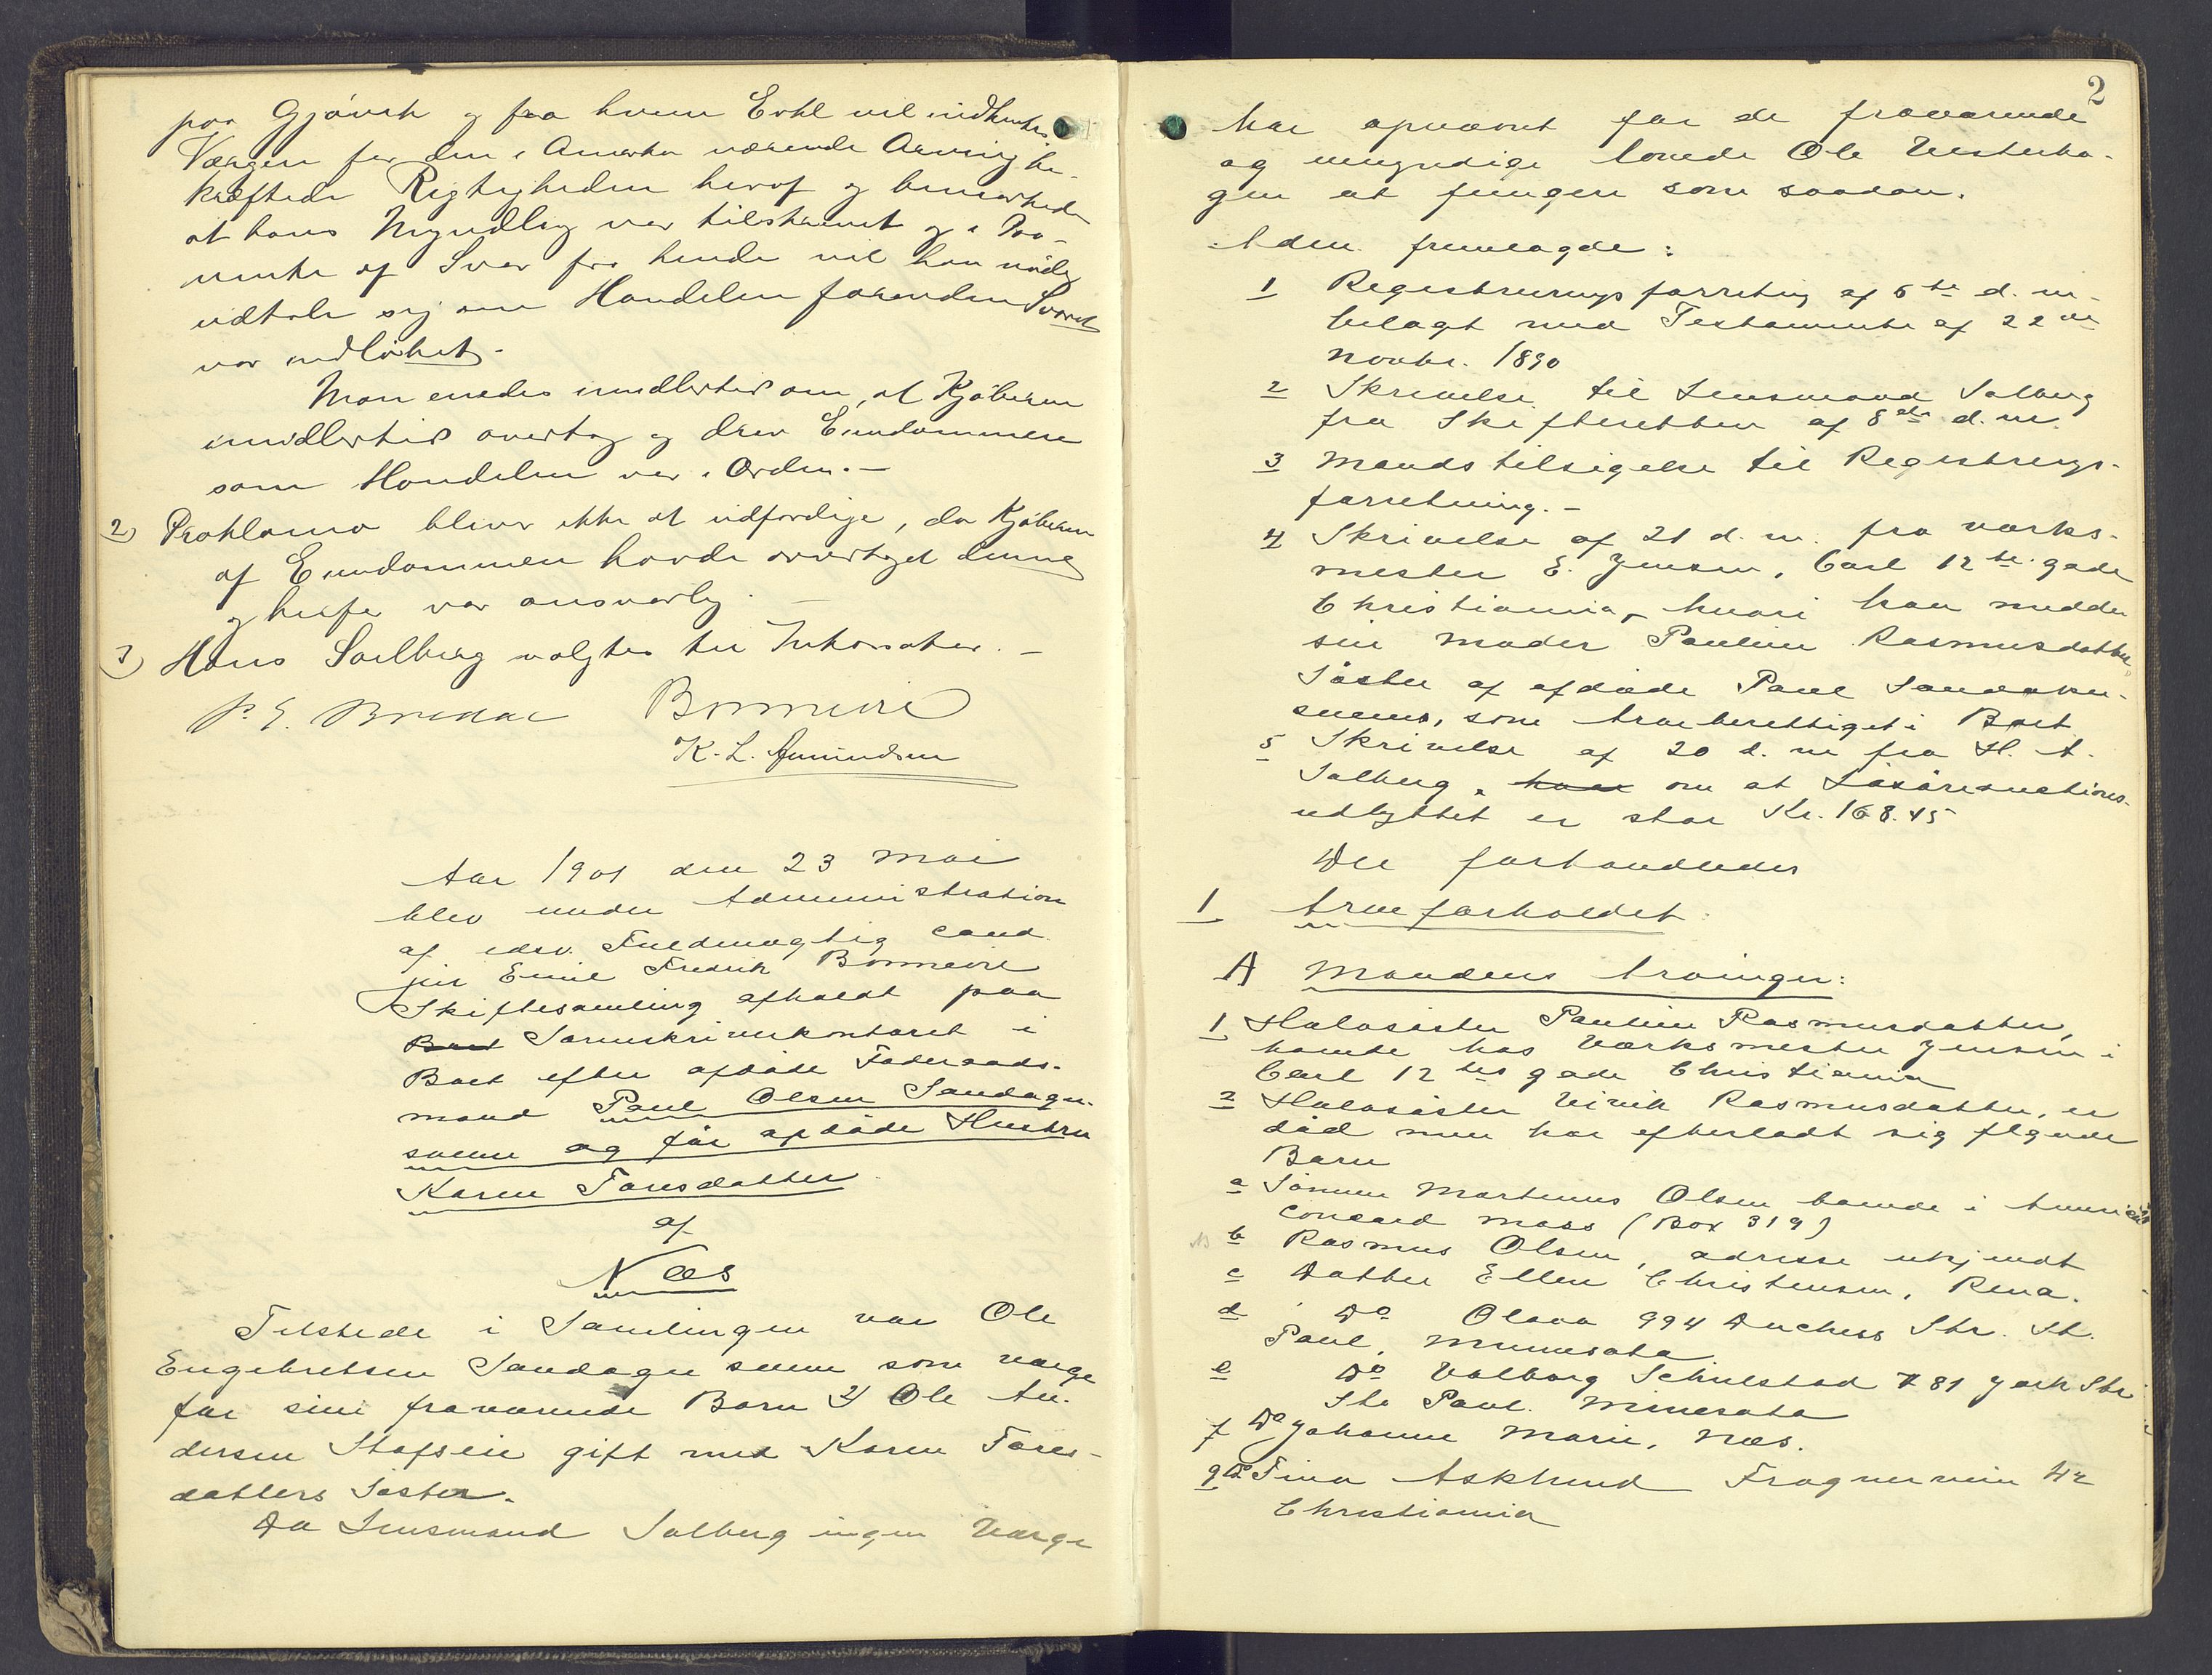 paa Gjøvik og fra hvem Erkl vil indhentes
Værgen for den i Amerika værende Arving be-
kræftede Rigtigheden herof og bemærkede
at hans Myndling var tilskrevet og i Paa-
vente af Svar fra hende vil han nødig
udtale sig om Handelen forinden Svaret
var indløbet.
Man enedes imidlertid om, at Kjøberen
imidlertid overtog og drev Eiendommen
som Handelen var i Orden. -
2) Proklama bliver ikke at udfærdige, da Kjøberen
af Eiendommen havde overtaget denne
og herfor var ansvarlig. -
3) Hans Solberg valgtes til Inkassator. -
Bonnevie
K. L. Amundsen
Aar 1901 den 23 Mai
blev under Administration
af edsv. Fuldmægtig cand.
jur Emil Fredrik Bonnevie
Skiftesamling afholdt paa
Boet Sorenskriverkontoret i
Boet efter afdøde Føderaads-
mand Paul Olsen Sandager-
svenn og før afdøde Hustru
Karen Toresdatter
af
Næs
Tilstede i Samlingen var Ole
Engebretsen Sandager svenn som værge
for sine fraværende Børn 2) Ole An-
dersen Stafseie gift med Karen Tores-
datters Søster.
Da Lensmand Solberg ingen Værge
2
har opnævnt for de fraværende
og umyndige lovede Ole Vesterha-
gen at fungere som saadan.
Adm. fremlagde:
1 Registreringsforretning af 6te d. m.
belagt med Testamente af 22de
Novbr. 1890
2 Skrivelse til Lensmand Solberg
fra Skifteretten af 8de d. m.
3 Mandstilsigelse til Registrerings-
forretning. -
4 Skrivelse af 21 d. m. fra værks-
mester E. Jensen, Carl 12te gade
Christiania, hvori han melder
sin Moder Pauline Rasmusdatter,
Søster af afdøde Paul Sandaker-
svenn, som Arveberettiget i Boet
5 Skrivelse af 20 d. m fra H. A.
Solberg, hvor om at Løsøreauctions-
udbyttet er stor Kr. 168.45
Der forhandledes
1 Arveforholdet:
A Mandens Arvinger:
1 Halvsøster Pauline Rasmusdatter,
boende hos Værksmester Jensen i
Carl 12tes gade Christiania
2 Halvsøster Rasmusdatter, er
død men har efterladt sig flgende
Børn
a Sønnen Martinus Olsen boende i Amerika
Concord Mass (Box 319)
b Rasmus Olsen, adresse ukjendt
c Datter Ellen Christensen, Rena.
d Do Olava 994 Duchess Str. St.
Paul, Minnesota
e Do Valborg Schulstad 781 York Str
St. Paul. Minesota
f Do Johanne Marie, Næs.
g Do Tina Asklund Frognerveien 42
Christiania